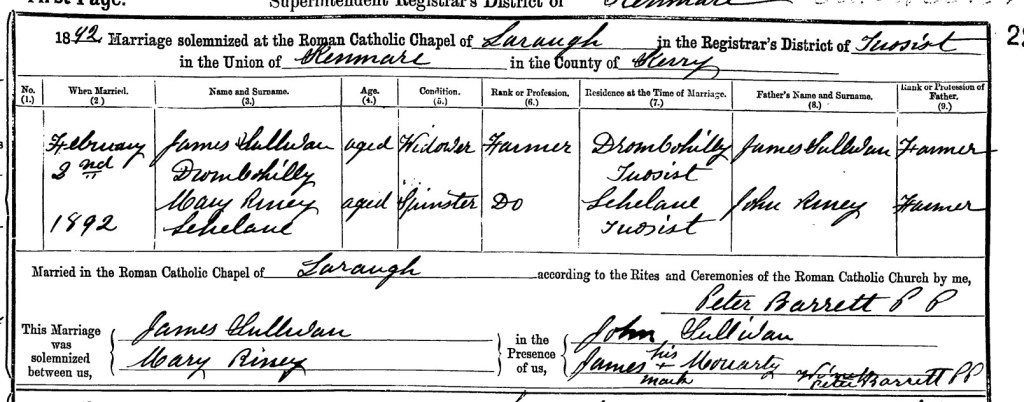 First Page. Superintendent Registrar's District of Kenmare
1892 Marriage solemnized at the Roman Catholic Chapel of Laragh in the Registrar's District of Tuosist
22
in the Union of Kenmare in the County of Kerry
No. (1.) When Married. (2.) Name and Surname. (3.) Age. (4.) Condition. (5.) Rank or Profession. (6.) Residence at the Time of Marriage. (7.) Father's Name and Surname. (8.) Rank or Profession of Father. (9.)
February James Sullivan aged Widower Farmer Drombohilly James Sullivan Farmer
2nd Drombohilly Tuosist
Mary Riney aged Spinster Do Lehelane John Riney Farmer
1892 Lehelane Tuosist
Married in the Roman Catholic Chapel of Laragh according to the Rites and Ceremonies of the Roman Catholic Church by me,
Peter Barrett P P
This Marriage was solemnized between us, James Sullivan in the Presence of us, John Sullivan
Mary Riney James his + mark Moriarty Peter Barrett PP